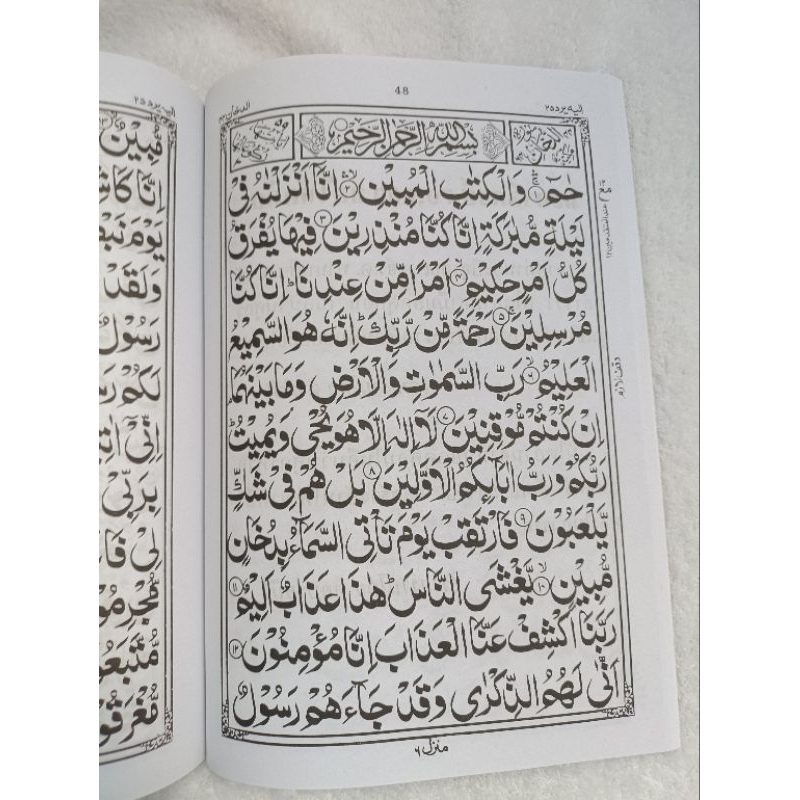 48
الدخان ٤٤
اليه يرد ٢٥
بِسْمِ اللّٰهِ الرَّحْمٰنِ الرَّحِيْمِ
حٰمٓ ۝١ وَالْكِتٰبِ الْمُبِيْنِ ۝٢ اِنَّاۤ اَنْزَلْنٰهُ فِيْ
لَيْلَةٍ مُّبٰرَكَةٍ اِنَّا كُنَّا مُنْذِرِيْنَ ۝٣ فِيْهَا يُفْرَقُ
كُلُّ اَمْرٍ حَكِيْمٍ ۝٤ اَمْرًا مِّنْ عِنْدِنَا ؕ اِنَّا كُنَّا
مُرْسِلِيْنَ ۝٥ رَحْمَةً مِّنْ رَّبِّكَ ؕ اِنَّهٗ هُوَ السَّمِيْعُ
الْعَلِيْمُ ۝٦ رَبِّ السَّمٰوٰتِ وَالْاَرْضِ وَمَا بَيْنَهُمَا
اِنْ كُنْتُمْ مُّوْقِنِيْنَ ۝٧ لَاۤ اِلٰهَ اِلَّا هُوَ يُحْيٖ وَيُمِيْتُ ؕ
رَبُّكُمْ وَرَبُّ اٰبَآئِكُمُ الْاَوَّلِيْنَ ۝٨ بَلْ هُمْ فِيْ شَكٍّ
يَّلْعَبُوْنَ ۝٩ فَارْتَقِبْ يَوْمَ تَاْتِي السَّمَآءُ بِدُخَانٍ
مُّبِيْنٍ ۝١٠ يَّغْشَى النَّاسَ ؕ هٰذَا عَذَابٌ اَلِيْمٌ ۝١١
رَبَّنَا اكْشِفْ عَنَّا الْعَذَابَ اِنَّا مُؤْمِنُوْنَ ۝١٢
اَنّٰى لَهُمُ الذِّكْرٰى وَقَدْ جَآءَهُمْ رَسُوْلٌ
منزل ٦
وقف لازم
اليه يرد ٢٥
مُّبِيْنٍ
اِنَّا
يَوْمَ
وَلَقَدْ
رَسُوْلٌ
لَكُمْ
اِنِّيْۤ
بِرَبِّيْ
لِيْ
مُّجْرِمُوْنَ
مُّتَّبَعُوْنَ
مُّغْرَقُوْنَ